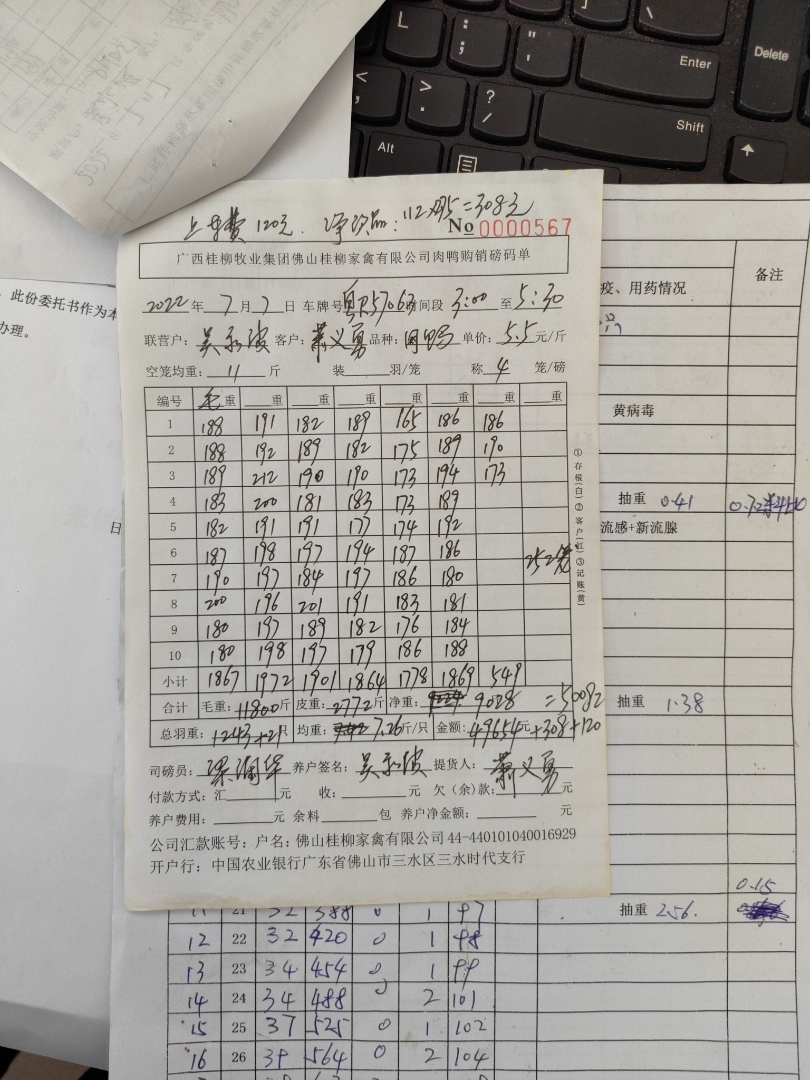 L
:
;
"
'
Enter
Delete
<
,
>
.
?
/
Shift
Alt
上车费 120元. 净次品: 112 = 308元
No 0000567
广西桂柳牧业集团佛山桂柳家禽有限公司肉鸭购销磅码单
2022年 7月 7日 车牌号 粤R57063 时间段 3:00 至 5:30
联营户: 客户: 萧义勇 品种: 肉鸭 单价: 5.5 元/斤
空笼均重: 11 斤 装 羽/笼 称 4 笼/磅
编号 毛重 重 重 重 重 重 重 重
1 188 191 182 189 165 186 186
2 188 192 189 182 175 189 190
3 189 212 190 190 173 194 173
4 183 200 181 183 173 189
5 182 191 191 177 174 192
6 187 198 197 194 187 186 252笼
7 190 197 184 197 186 180
8 200 196 201 191 183 181
9 180 197 189 182 176 184
10 180 198 197 179 186 188
小计 1867 1972 1901 1864 1778 1869 549
合计 毛重: 11800斤 皮重: 2772斤 净重: 9028 = 50082
总羽重: 1243+21只 均重: 7.26斤/只 金额: 49654元+308+120
①存根(白)②客户(红)③记账(黄)
司磅员: 养户签名: 提货人: 萧义勇
付款方式: 汇 元 收: 元 欠(余)款: 元
养户费用: 元 余料 包 养户净金额: 元
公司汇款账号: 户名: 佛山桂柳家禽有限公司44-440101040016929
开户行: 中国农业银行广东省佛山市三水区三水时代支行
此份委托书作为本
办理。
日
疫、用药情况 备注
黄病毒
抽重 0.41
流感+新流腺
抽重 1.38
0.15
抽重 2.56.
11 21 32 388 0 1 97
12 22 32 420 0 1 98
13 23 34 454 0 1 99
14 24 34 488 0 2 101
15 25 37 525 0 1 102
16 26 39 564 0 2 104